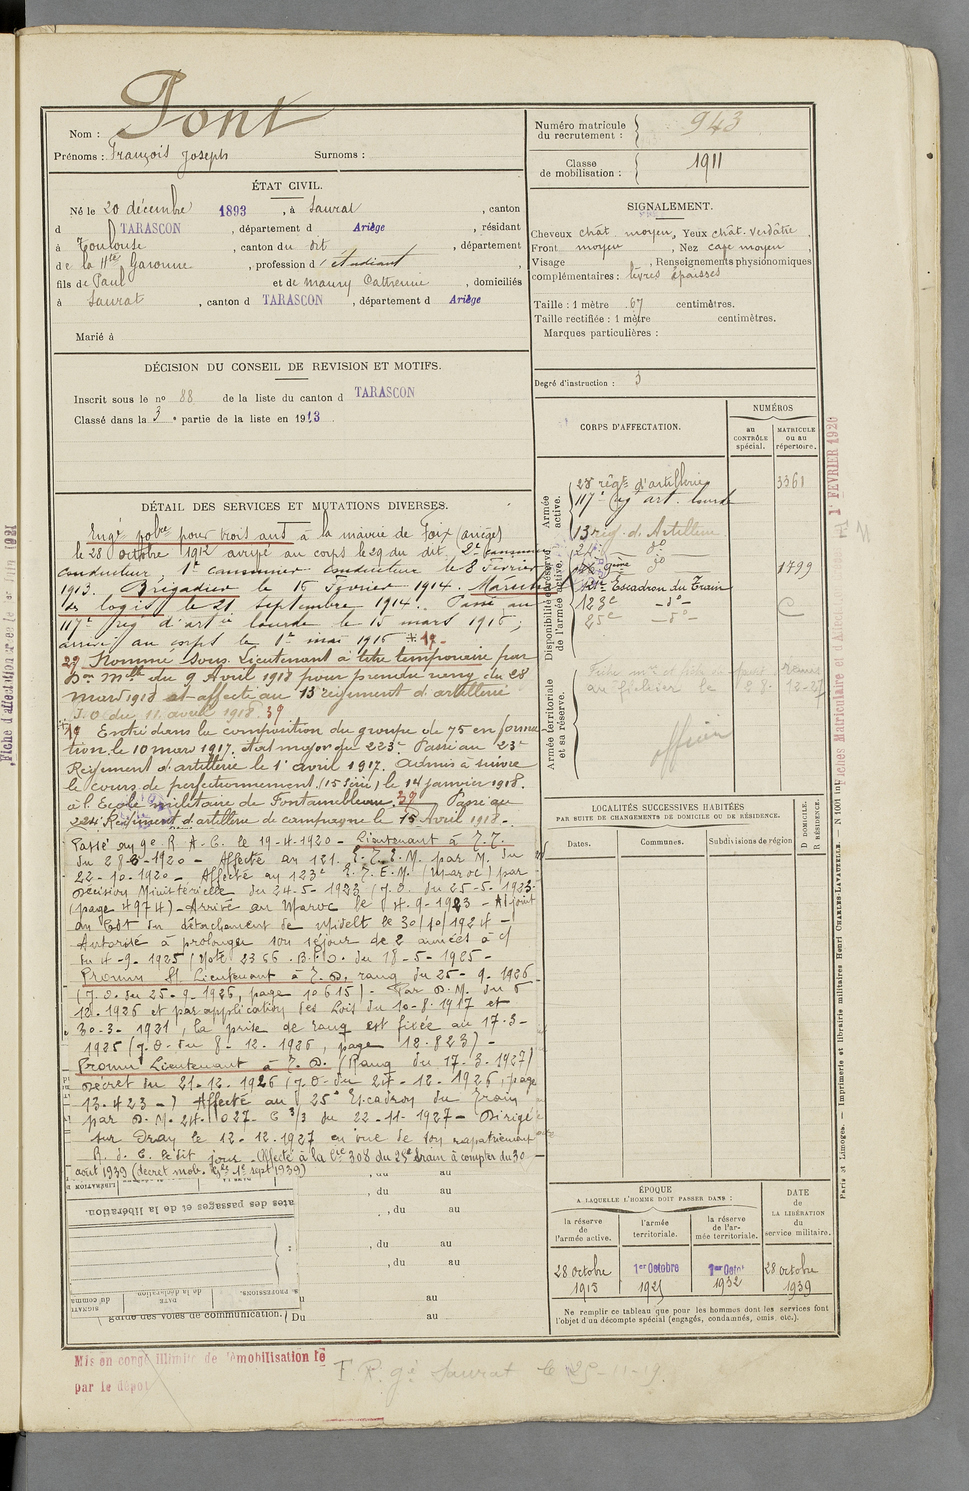 Nom : Pont
Prénoms : François Joseph Surnoms :
Numéro matricule du recrutement : 943
Classe de mobilisation : 1911
ÉTAT CIVIL.
Né le 20 décembre 1893, à Saurat, canton
d TARASCON, département d Ariège, résidant
à Toulouse, canton du dit, département
de la Hte Garonne, profession d'étudiant
fils de Paul et de Maury Catherine, domiciliés
à Saurat, canton d TARASCON, département d Ariège
Marié à
SIGNALEMENT.
Cheveux chât. moyen, Yeux chât. verdâtre,
Front moyen, Nez cave moyen,
Visage , Renseignements physionomiques
complémentaires : lèvres épaisses
Taille : 1 mètre 67 centimètres.
Taille rectifiée : 1 mètre centimètres.
Marques particulières :
Degré d'instruction : 3
DÉCISION DU CONSEIL DE REVISION ET MOTIFS.
Inscrit sous le no 88 de la liste du canton d TARASCON
Classé dans la 3e partie de la liste en 1913
DÉTAIL DES SERVICES ET MUTATIONS DIVERSES.
Engé pour trois ans à la mairie de Foix (Ariège)
le 28 octobre 1912 arrivé au corps le 29 du dit. 2e canonnier
conducteur, 1er canonnier conducteur le 8 Février
1913. Brigadier le 15 Février 1914. Maréchal
des logis le 21 septembre 1914. Passé au
117e rég d'artie lourde le 15 mars 1916;
arrivé au corps le 1er mai 1916 * 19
29 Nommé Sous-Lieutenant à titre temporaire par
Don mlle du 9 Avril 1918 pour prendre rang du 28
mars 1918 et affecté au 13 régiment d'artillerie
J.O du 11 avril 1918. 39
19 Entré dans la composition du groupe de 75 en forma-
tion le 10 mars 1917. état major du 223e Passé au 23e
Régiment d'artillerie le 1er avril 1917. Admis à suivre
le cours de perfectionnement (15e Série) le 14 janvier 1918.
à l'École militaire de Fontainebleau. 29 Passé au
Régiment d'artillerie de campagne le 15 Avril 1918.
Passé au 9e R.A.C. le 19-4-1920 - Lieutenant à T.T.
du 28-3-1920 - Affecté au 121. E.T.E.M. par M. du
22-10-1920 - Affecté au 123e E.T.E.M. (Maroc) par
Décision Ministérielle du 24-5-1923 (J.O. du 25-5-1923
(page 4974) - Arrivé au Maroc le 4-9-1923 - Adjoint
au Cdt du détachement de Midelt le 30/10/1924 -
Autorisé à prolonger son séjour de 2 années à c/
du 4-9-1925 (Note 2366 du 18-5-1925 -
Promu St Lieutenant à T.D. rang du 25-9-1926
(J.O. du 25-9-1926, page 10615) - Par D.M. du 6
12-1926 et par application des Lois du 10-8-1917 et
30-3-1921, la prise de rang est fixée au 17-3-
1925 (J.O. du 8-12-1926, page 12.823) -
Promu Lieutenant à T.D. (Rang du 17-3-1927)
Décret du 21-12-1926 (J.O. du 24-12-1926, page
13.423 -) Affecté au 25e Escadron du Train
par D.M. 24.027-C 3/3 du 22-11-1927 - Dirigé
sur Oran le 12-12-1927 en vue de son rapatriement
R. d. C. le dit jour - Affecté à la Cie 308 du 25e train à compter du 30
août 1939 (décret mob. 1er sept 1939)
CORPS D'AFFECTATION.
NUMÉROS
au CONTRÔLE spécial.
MATRICULE ou au répertoire.
Armée active.
23e régt d'artillerie 3361
117e rég art. lourde
13 rég. d'Artillerie
Disponibilité ou réserve de l'armée active.
Escadron du Train 1799
123e - do -
25e - do -
Armée territoriale et sa réserve.
officier
LOCALITÉS SUCCESSIVES HABITÉES
PAR SUITE DE CHANGEMENTS DE DOMICILE OU DE RÉSIDENCE.
Dates. Communes. Subdivisions de région
D DOMICILE. R RÉSIDENCE.
ÉPOQUE
A LAQUELLE L'HOMME DOIT PASSER DANS :
la réserve de l'armée active. l'armée territoriale. la réserve de l'armée territoriale.
DATE de LA LIBÉRATION du service militaire.
28 octobre 1915
1er Octobre 1925
1er Octo 1932
28 octobre 1939
Ne remplir ce tableau que pour les hommes dont les services font
l'objet d'un décompte spécial (engagés, condamnés, omis etc.).
au
, du au
, du au
, du au
, du au
au
(garde des voies de communication.) Du au
ates des passages et de la libération.
PROFESSIONS. DATE de la déclaration. SIGNATU du comma
Mis en congé illimité de démobilisation le
par le dépôt
F. R. gé Saurat le 25-11-19.
1er FEVRIER 1926
Fiches Matriculaire et d'Affec
Paris et Limoges. — Imprimerie et librairie militaires Henri CHARLES-LAVAUZELLE.
Fiche d'affectation